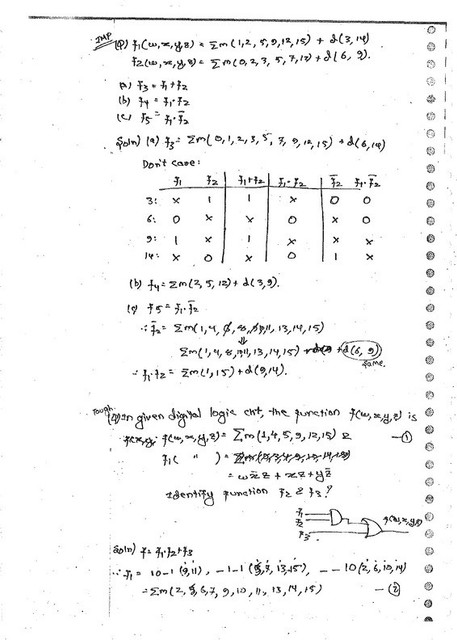 IMP (P) f1(w,x,y,z) = Σm(1,2,5,9,12,15) + d(3,14)
f2(w,x,y,z) = Σm(0,2,3,5,7,12) + d(6, 9).
(a) f3 = f1+f2
(b) f4 = f1·f2
(c) f5 = f1·f̄2
Soln) (a) f3 = Σm(0,1,2,3,5,7,9,12,15) + d(6,14)
Don't care:
f1 f2 f1+f2 f1·f2 f̄2 f1·f̄2
3: x 1 1 x 0 0
6: 0 x x 0 x 0
9: 1 x 1 x x x
14: x 0 x 0 1 x
(b) f4 = Σm(2,5,12) + d(3,9).
(c) f5 = f1·f̄2
∴ f̄2 = Σm(1,4, 8, 10,11, 13,14,15)
⇓
Σm(1,4,8,10,11,13,14,15) + d(6, 9)
same.
∴ f1·f̄2 = Σm(1,15) + d(9,14).
Tough
In given digital logic ckt, the function f(w,x,y,z) is
f(w,x,y,z) = Σm(1,4,5,9,12,15) & —①
f1( " ) =
= wx̄z + xz + yz̄
Identify function f2 & f3?
f1
f2
f3
f(w,x,y,z)
Soln) f = f1·f2+f3
∴ f1 = 10-1 (9,11), -1-1 (5,7,13,15), --10 (2,6,10,14)
= Σm(2,5,6,7,9,10,11,13,14,15) —②